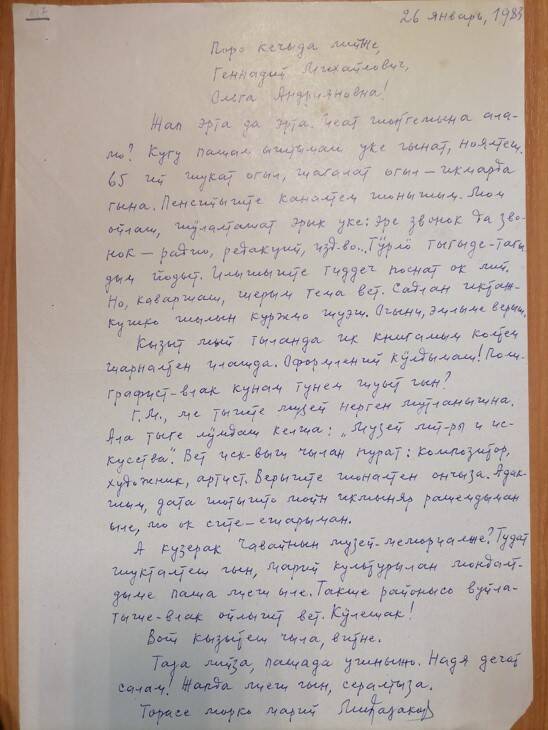 26 январь, 1983
Поро кечыда лийже,
Геннадий Михайлович,
Ольга Андрияновна!
Жап эрта да эрта.
мо? Кугу пашам ыштымаш уке гынат,
65 ий шукат огыл, шагалат огыл – икмарда
гына. Пенсийыште каналтем шонышым. Мом
ойлаш, шӱлалташат эрык уке: эре звонок да зво-
нок – радио, редакций, изд-во... Тӱрлӧ тыгыде-
дым йодыт. Илышыште тыдеч посна ок лий.
Но, каваршаш, шерым тема вет. Садлан иктаж-
кушко шылын куржмо шуэш. Огыни, эмлыме верыш.
Кызыт мый тыланда ик книгамым колтем
шарналтен илашда. Оформлений кӱлдымаш! Поли-
графист-влак кунам тунем шуыт гын?
Г.М., ме тыште музей нерген мутланышна.
Ала тыге лӱмдаш келша: „Музей лит-ры и ис-
кусства". Вет иск-выш чылан пурат: композитор,
художник, артист. Верыште шоналтен ончыза. Адак-
шым, дата шотышто мойн икмыняр рашемдыман
ыле, мо ок сите – ешарыман.
А кузерак Чавайнын музей-мемориалже? Тудат
шукталтеш гын, марий культурылан мондалт-
дыме паша лиеш ыле. Такше районысо вуйла-
тыше-влак ойлышт вет. Кӱлешак!
Вот кызытеш чыла, витне.
Таза лийза, пашада ушныжо. Надя дечат
салам! Жапда лиеш гын, сералтыза.
Торасе морко марий